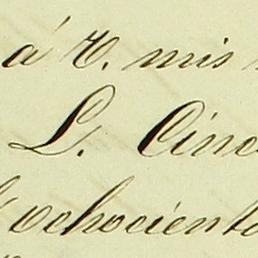 á V. mis
L. Cinc
ochocient